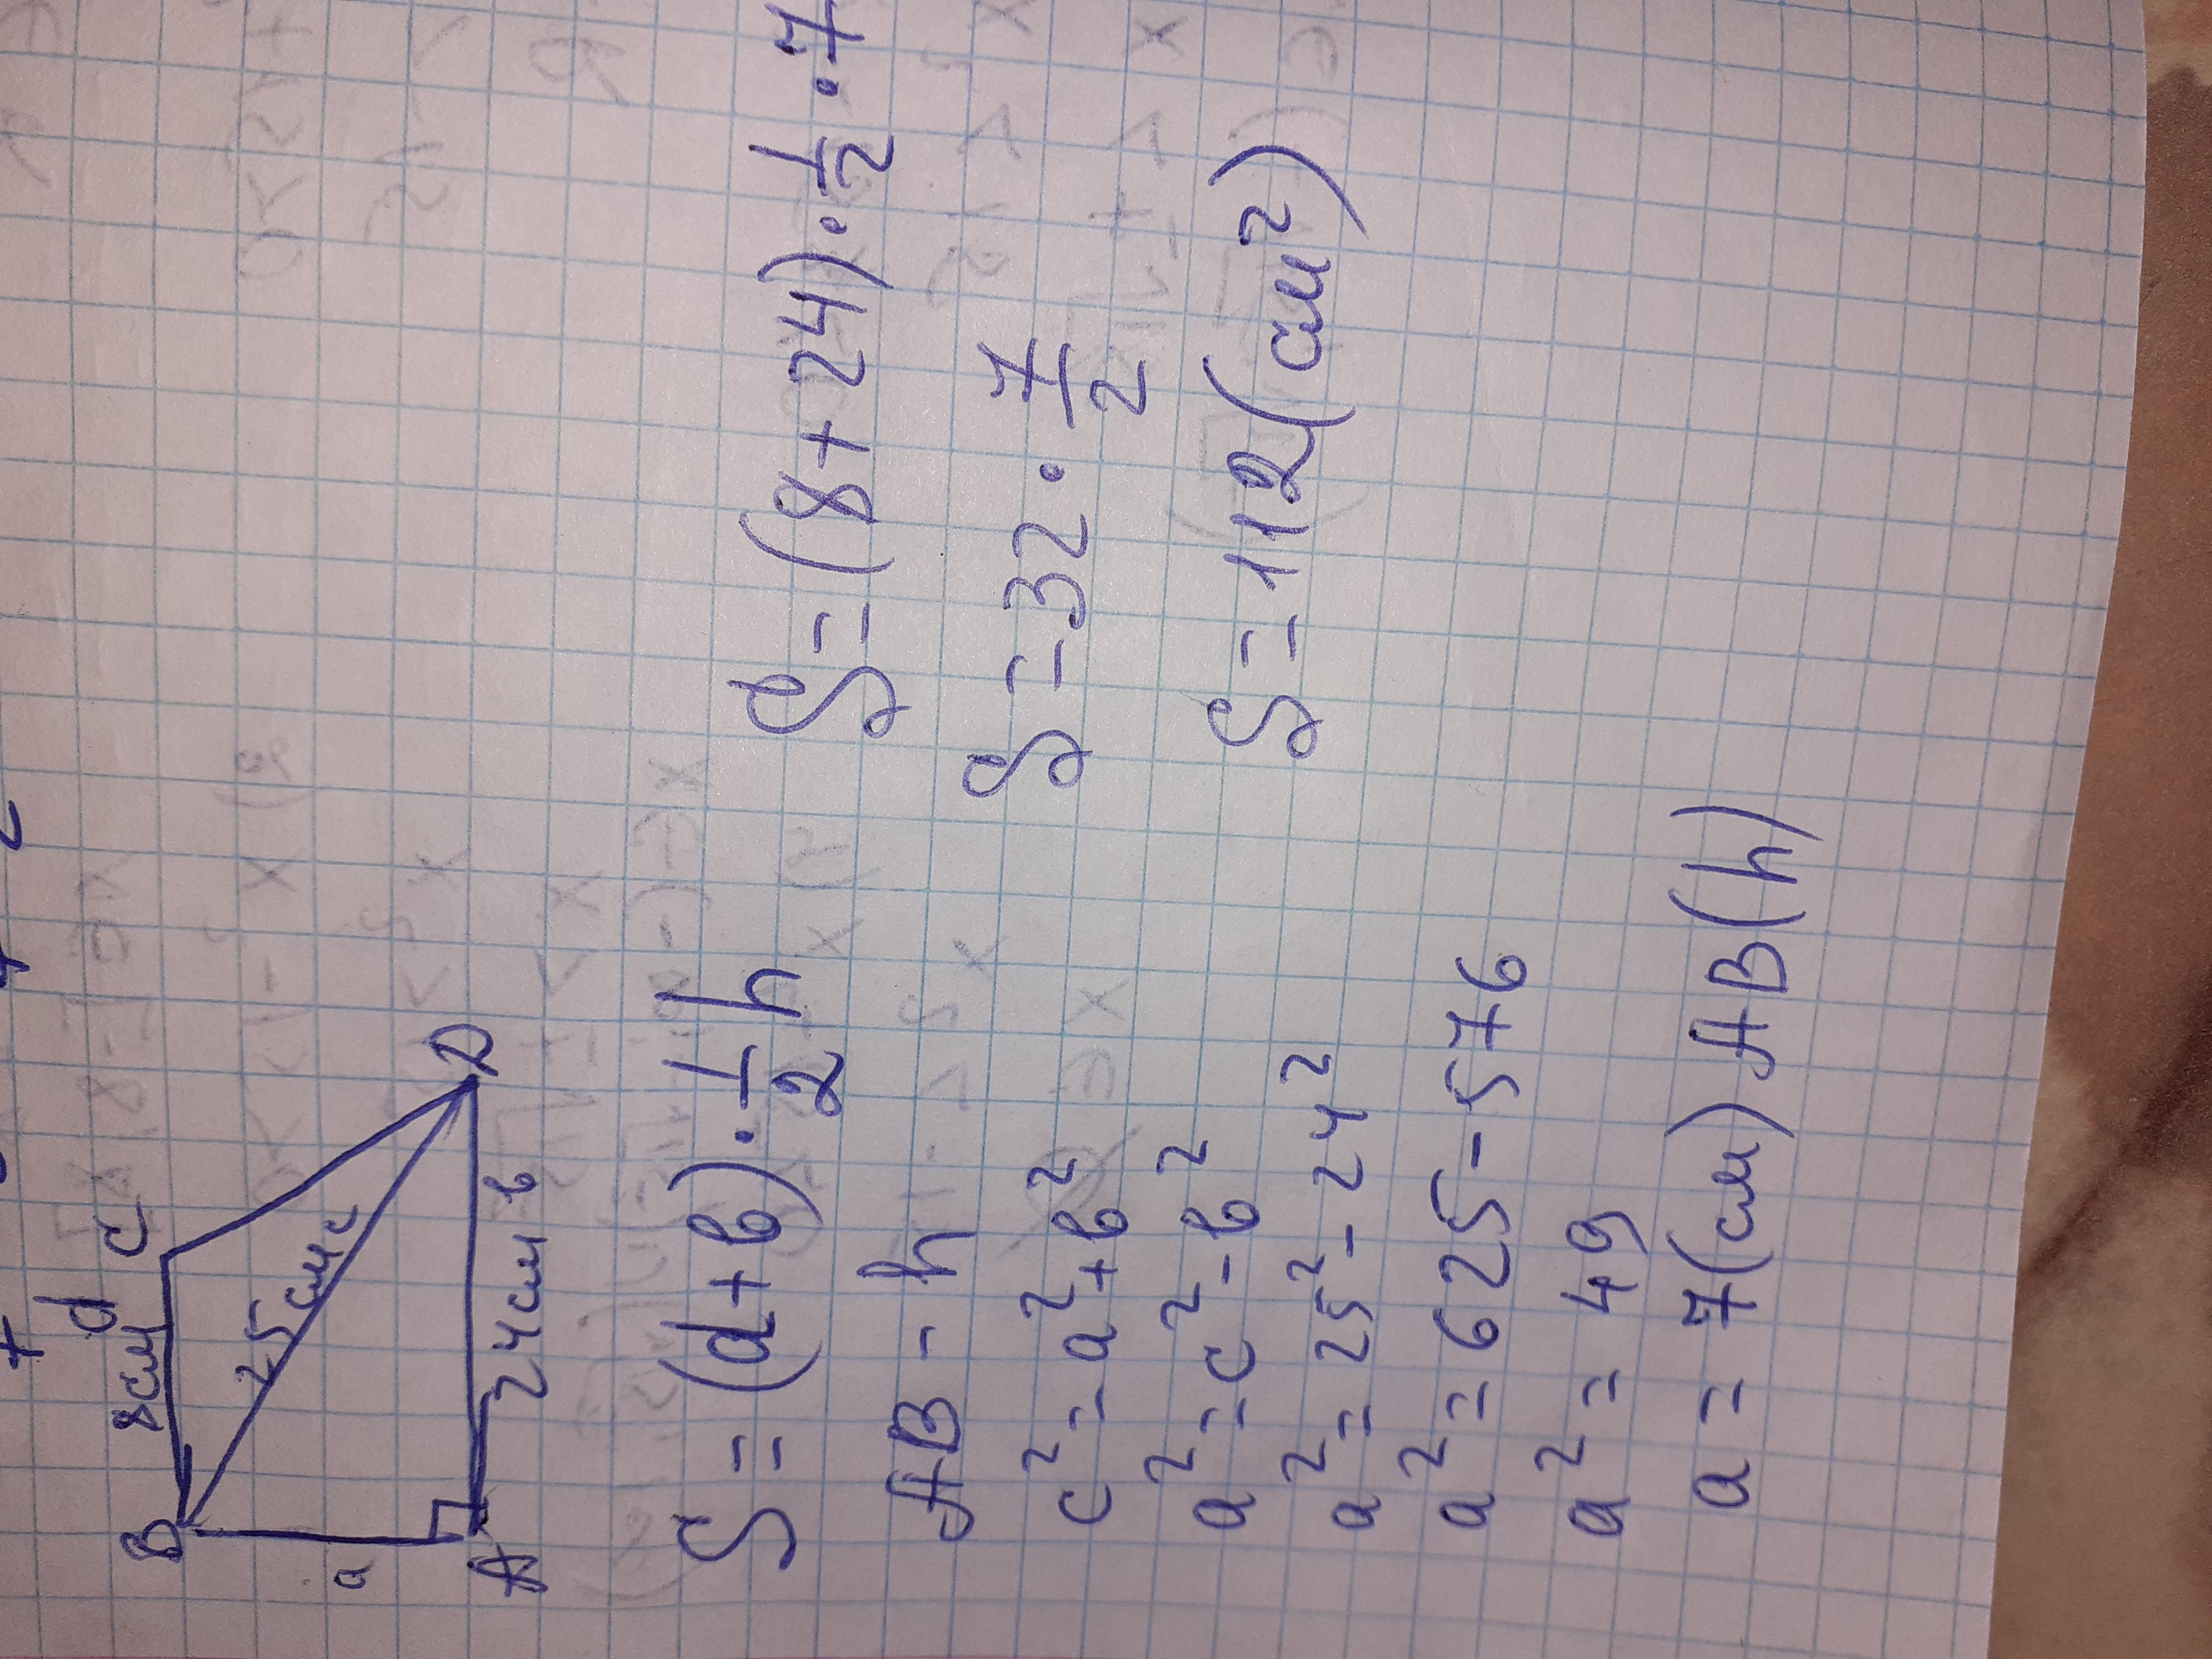 d
8см
B
C
25см
c
a
A
24см
в
D
S = (d+в)·1/2 h
AB - h
c² = a² + в²
a² = c² - в²
a² = 25² - 24²
a² = 625 - 576
a² = 49
a = 7(см) AB(h)
S = (8+24)·1/2·7
S = 32·7/2
S = 112(см²)